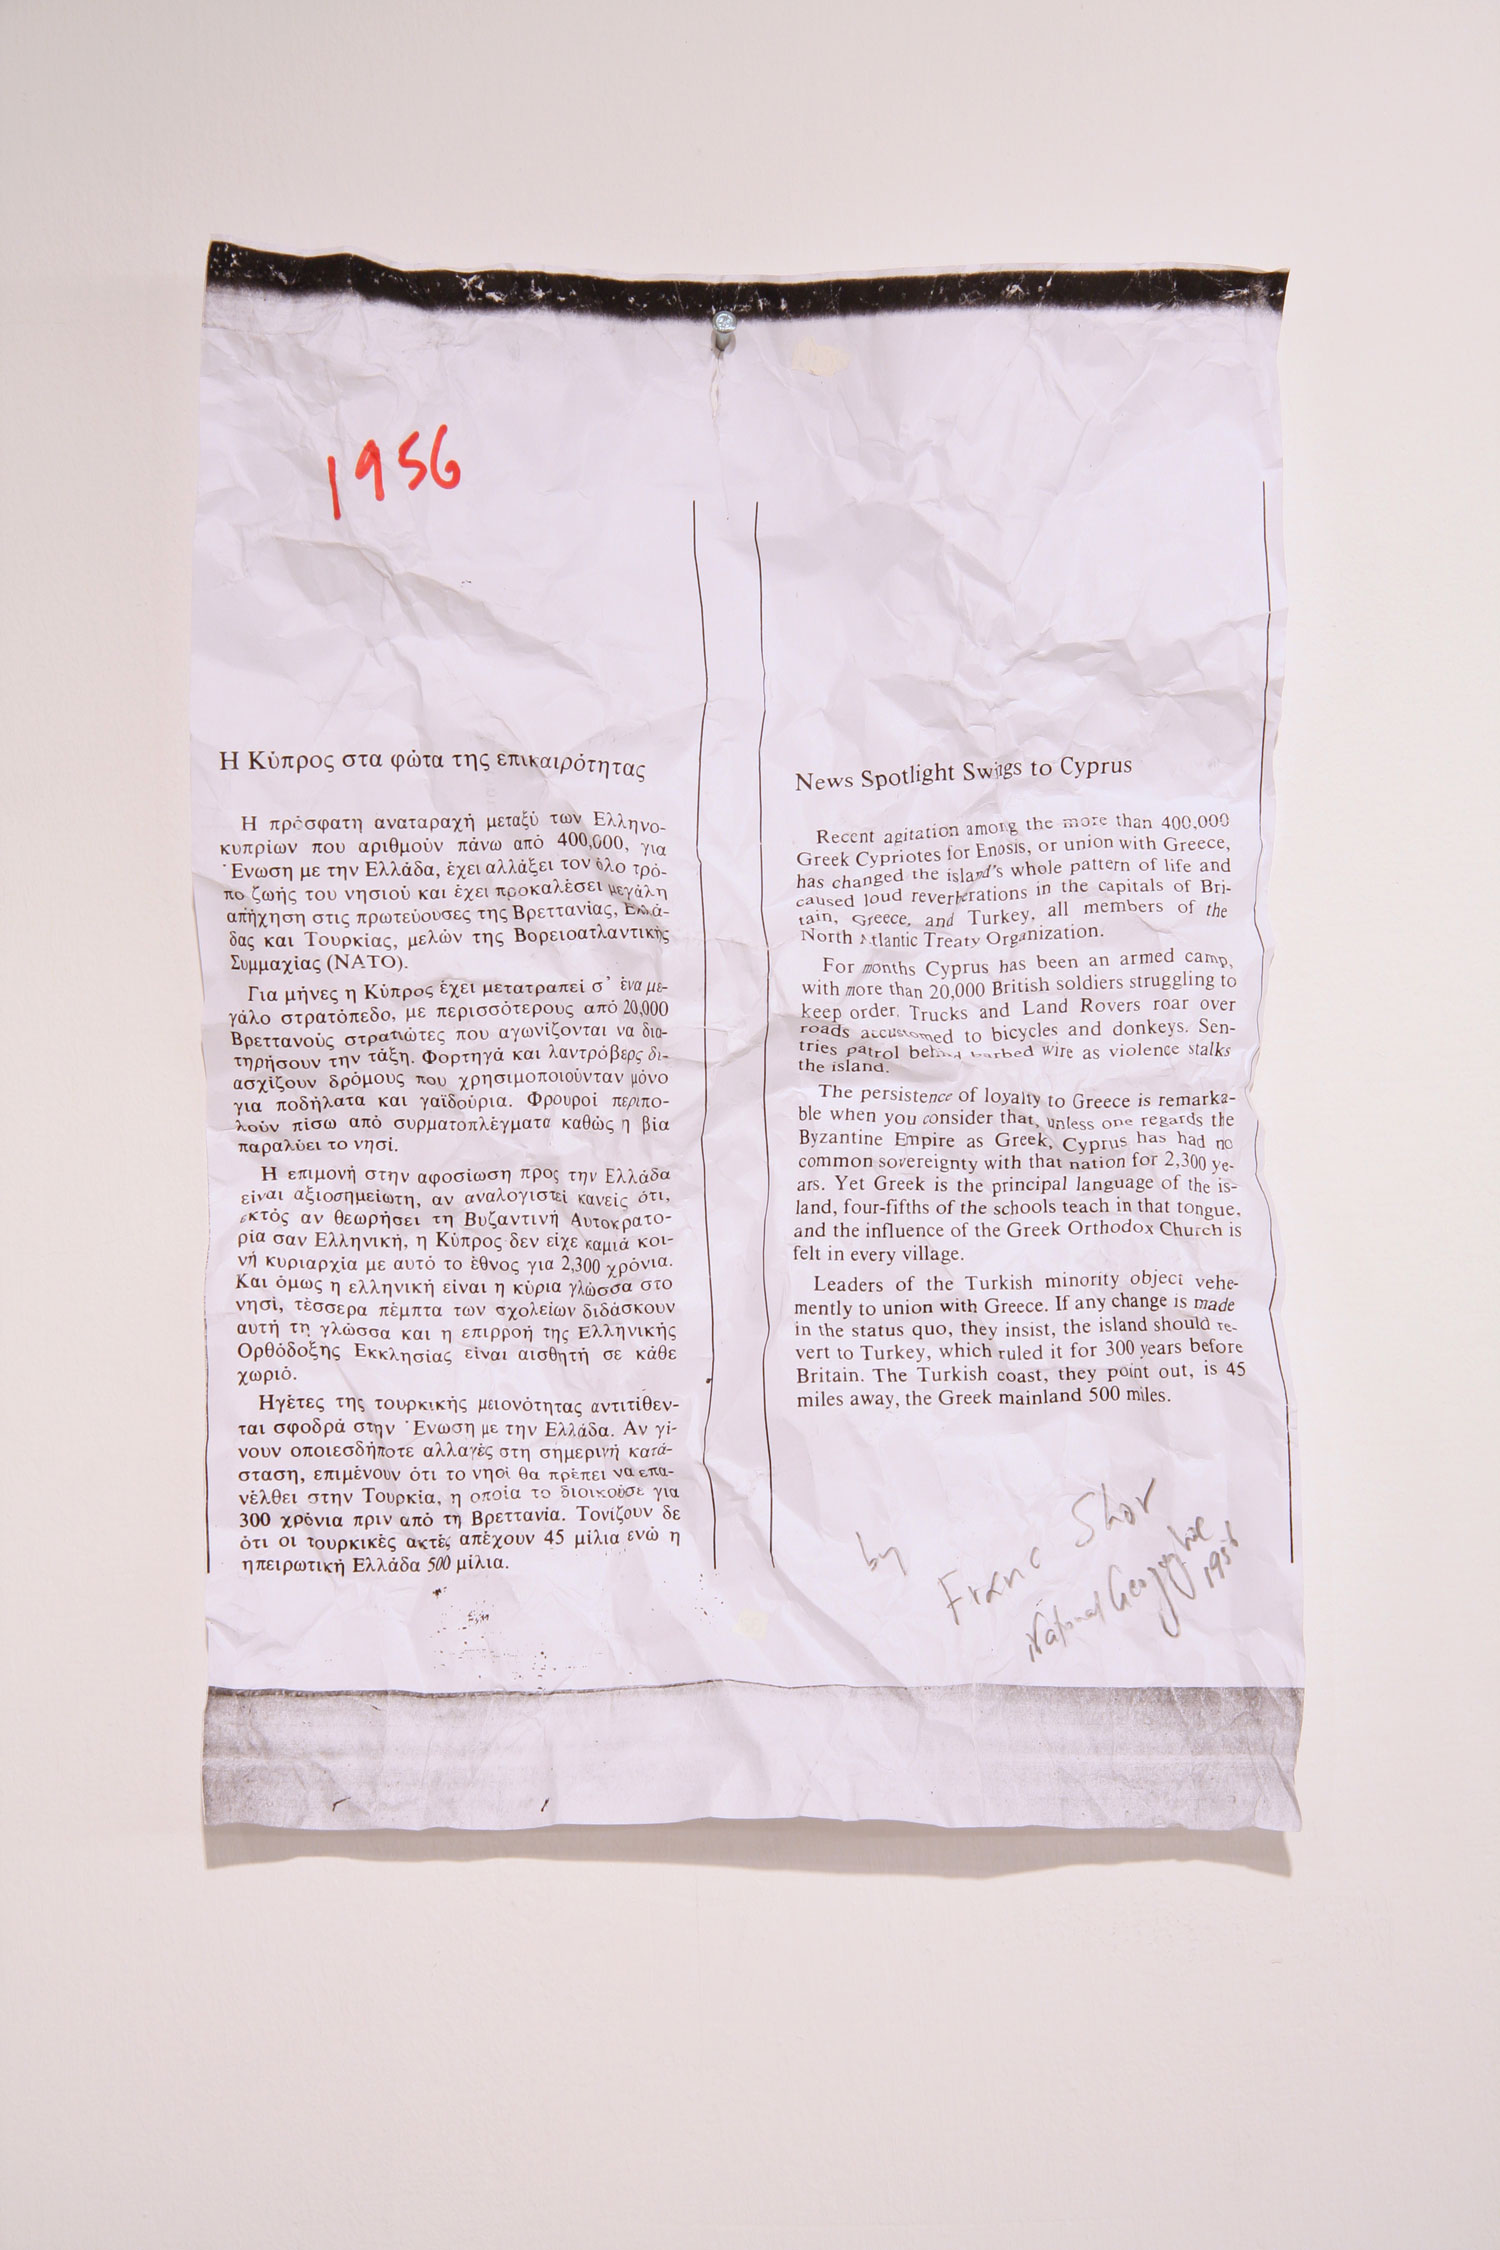 1956
Η Κύπρος στα φώτα της επικαιρότητας
Η πρόσφατη αναταραχή μεταξύ των Ελληνο-
κυπρίων που αριθμούν πάνω από 400,000, για
Ένωση με την Ελλάδα, έχει αλλάξει τον όλο τρό-
πο ζωής του νησιού και έχει προκαλέσει μεγάλη
απήχηση στις πρωτεύουσες της Βρεττανίας, Ελλά-
δας και Τουρκίας, μελών της Βορειοατλαντικής
Συμμαχίας (ΝΑΤΟ).
Για μήνες η Κύπρος έχει μετατραπεί σ' ένα με-
γάλο στρατόπεδο, με περισσότερους από 20,000
Βρεττανούς στρατιώτες που αγωνίζονται να δια-
τηρήσουν την τάξη. Φορτηγά και λαντρόβερς δι-
ασχίζουν δρόμους που χρησιμοποιούνταν μόνο
για ποδήλατα και γαϊδούρια. Φρουροί περιπο-
λούν πίσω από συρματοπλέγματα καθώς η βία
παραλύει το νησί.
Η επιμονή στην αφοσίωση προς την Ελλάδα
είναι αξιοσημείωτη, αν αναλογιστεί κανείς ότι,
εκτός αν θεωρήσει τη Βυζαντινή Αυτοκρατο-
ρία σαν Ελληνική, η Κύπρος δεν είχε καμιά κοι-
νή κυριαρχία με αυτό το έθνος για 2,300 χρόνια.
Και όμως η ελληνική είναι η κύρια γλώσσα στο
νησί, τέσσερα πέμπτα των σχολείων διδάσκουν
αυτή τη γλώσσα και η επιρροή της Ελληνικής
Ορθόδοξης Εκκλησίας είναι αισθητή σε κάθε
χωριό.
Ηγέτες της τουρκικής μειονότητας αντιτίθεν-
ται σφοδρά στην Ένωση με την Ελλάδα. Αν γί-
νουν οποιεσδήποτε αλλαγές στη σημερινή κατά-
σταση, επιμένουν ότι το νησί θα πρέπει να επα-
νέλθει στην Τουρκία, η οποία το διοικούσε για
300 χρόνια πριν από τη Βρεττανία. Τονίζουν δε
ότι οι τουρκικές ακτές απέχουν 45 μίλια ενώ η
ηπειρωτική Ελλάδα 500 μίλια.
News Spotlight Swings to Cyprus
Recent agitation among the more than 400,000
Greek Cypriotes for Enosis, or union with Greece,
has changed the island's whole pattern of life and
caused loud reverberations in the capitals of Bri-
tain, Greece, and Turkey, all members of the
North Atlantic Treaty Organization.
For months Cyprus has been an armed camp,
with more than 20,000 British soldiers struggling to
keep order. Trucks and Land Rovers roar over
roads accustomed to bicycles and donkeys. Sen-
tries patrol behind barbed wire as violence stalks
the island.
The persistence of loyalty to Greece is remarka-
ble when you consider that, unless one regards the
Byzantine Empire as Greek, Cyprus has had no
common sovereignty with that nation for 2,300 ye-
ars. Yet Greek is the principal language of the is-
land, four-fifths of the schools teach in that tongue,
and the influence of the Greek Orthodox Church is
felt in every village.
Leaders of the Turkish minority object vehe-
mently to union with Greece. If any change is made
in the status quo, they insist, the island should re-
vert to Turkey, which ruled it for 300 years before
Britain. The Turkish coast, they point out, is 45
miles away, the Greek mainland 500 miles.
by Franc Shor
National Geographic
1956